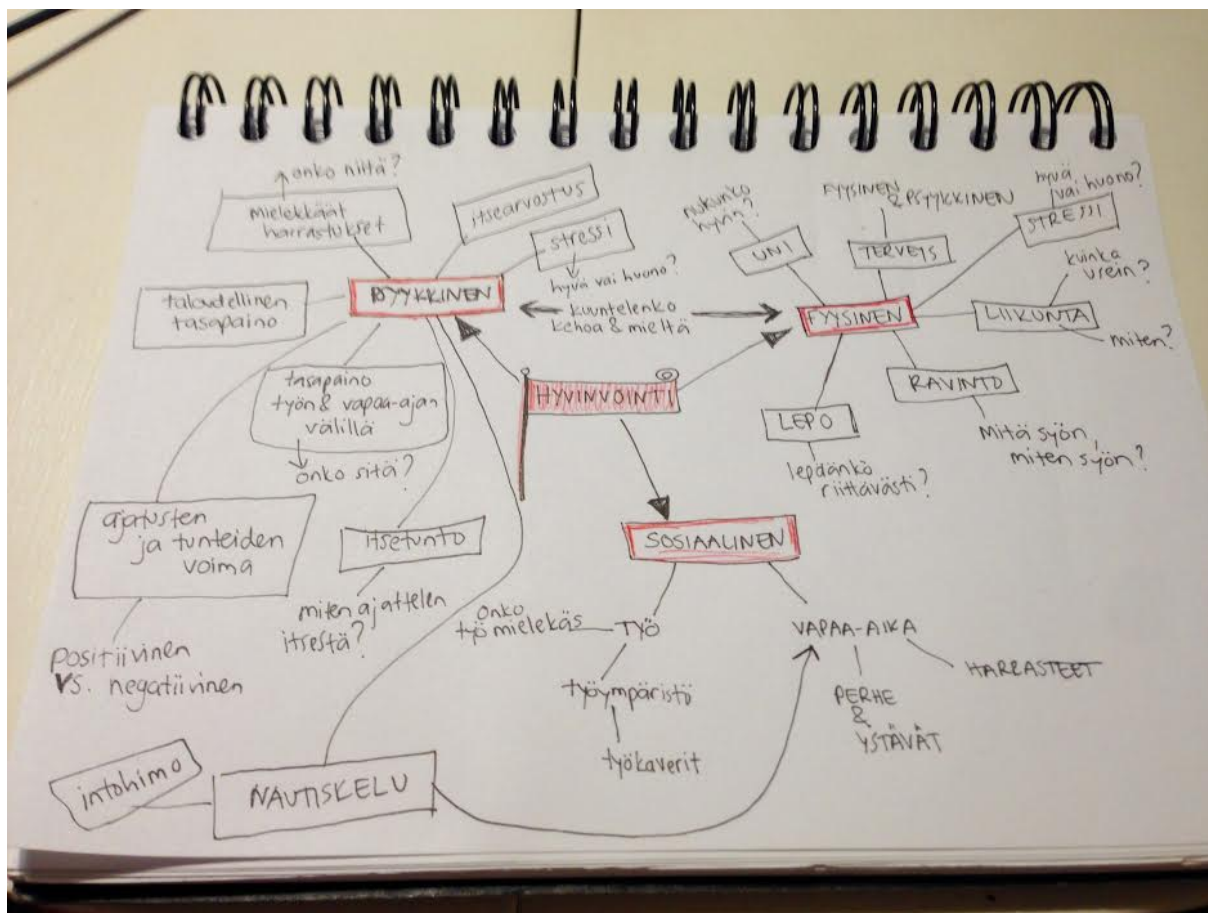 onko niitä?
mielekkäät
harrastukset
itsearvostus
stressi
hyvä vai huono?
PSYYKKINEN
taloudellinen
tasapaino
kuuntelenko
kehoa & mieltä
tasapaino
työn & vapaa-ajan
välillä
onko sitä?
ajatusten
ja tunteiden
voima
positiivinen
vs. negatiivinen
itsetunto
miten ajattelen
itsestä?
intohimo
NAUTISKELU
HYVINVOINTI
nukunko
hyvin?
UNI
FYYSINEN
& PSYYKKINEN
TERVEYS
hyvä
vai huono?
STRESSI
FYYSINEN
kuinka
usein?
LIIKUNTA
miten?
RAVINTO
Mitä syön,
miten syön?
LEPO
lepäänkö
riittävästi?
SOSIAALINEN
onko
työ mielekäs
TYÖ
työympäristö
työkaverit
VAPAA-AIKA
HARRASTEET
PERHE
&
YSTÄVÄT